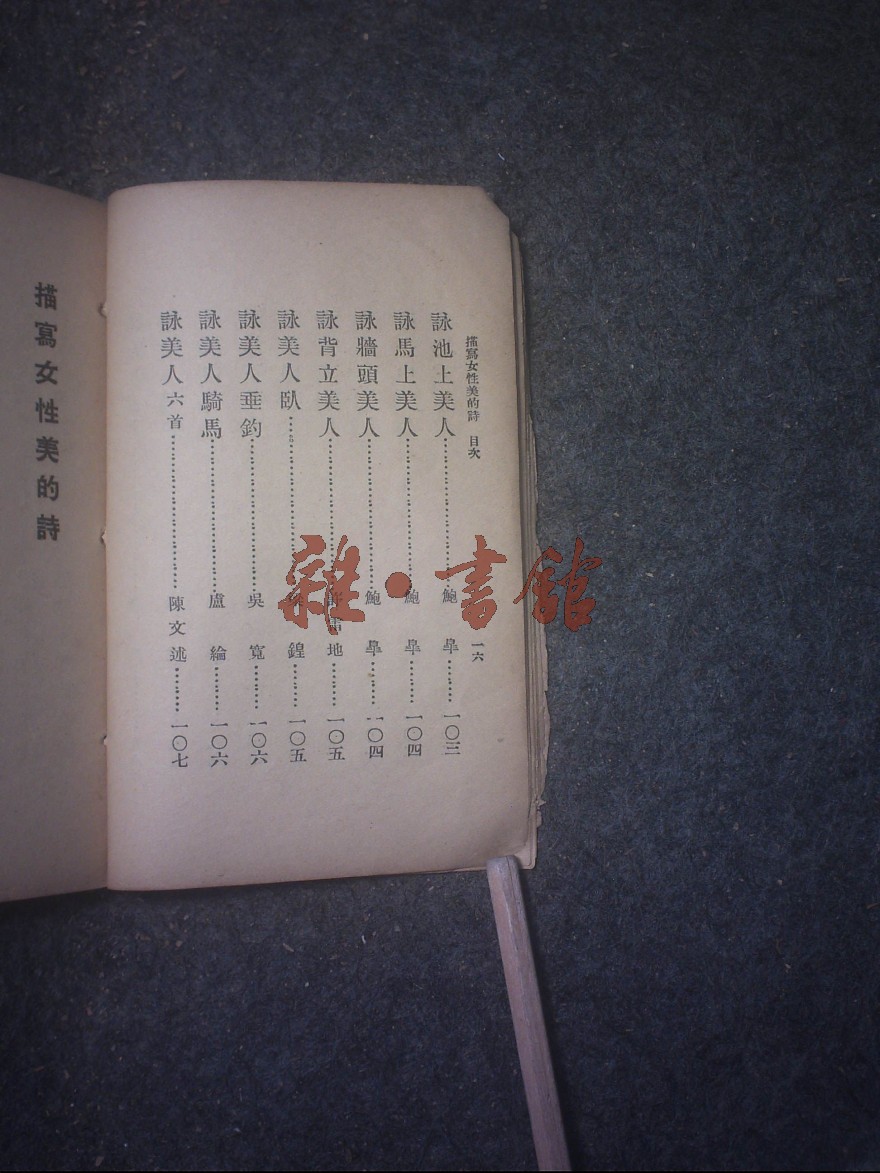 描寫女性美的詩 目次 一六
詠池上美人 鮑 臯 一〇三
詠馬上美人 鮑 臯 一〇四
詠牆頭美人 鮑 臯 一〇四
詠背立美人 地 一〇五
詠美人臥 鍠 一〇五
詠美人垂釣 吳 寬 一〇六
詠美人騎馬 盧 綸 一〇六
詠美人六首 陳文述 一〇七
描寫女性美的詩
雜·書館